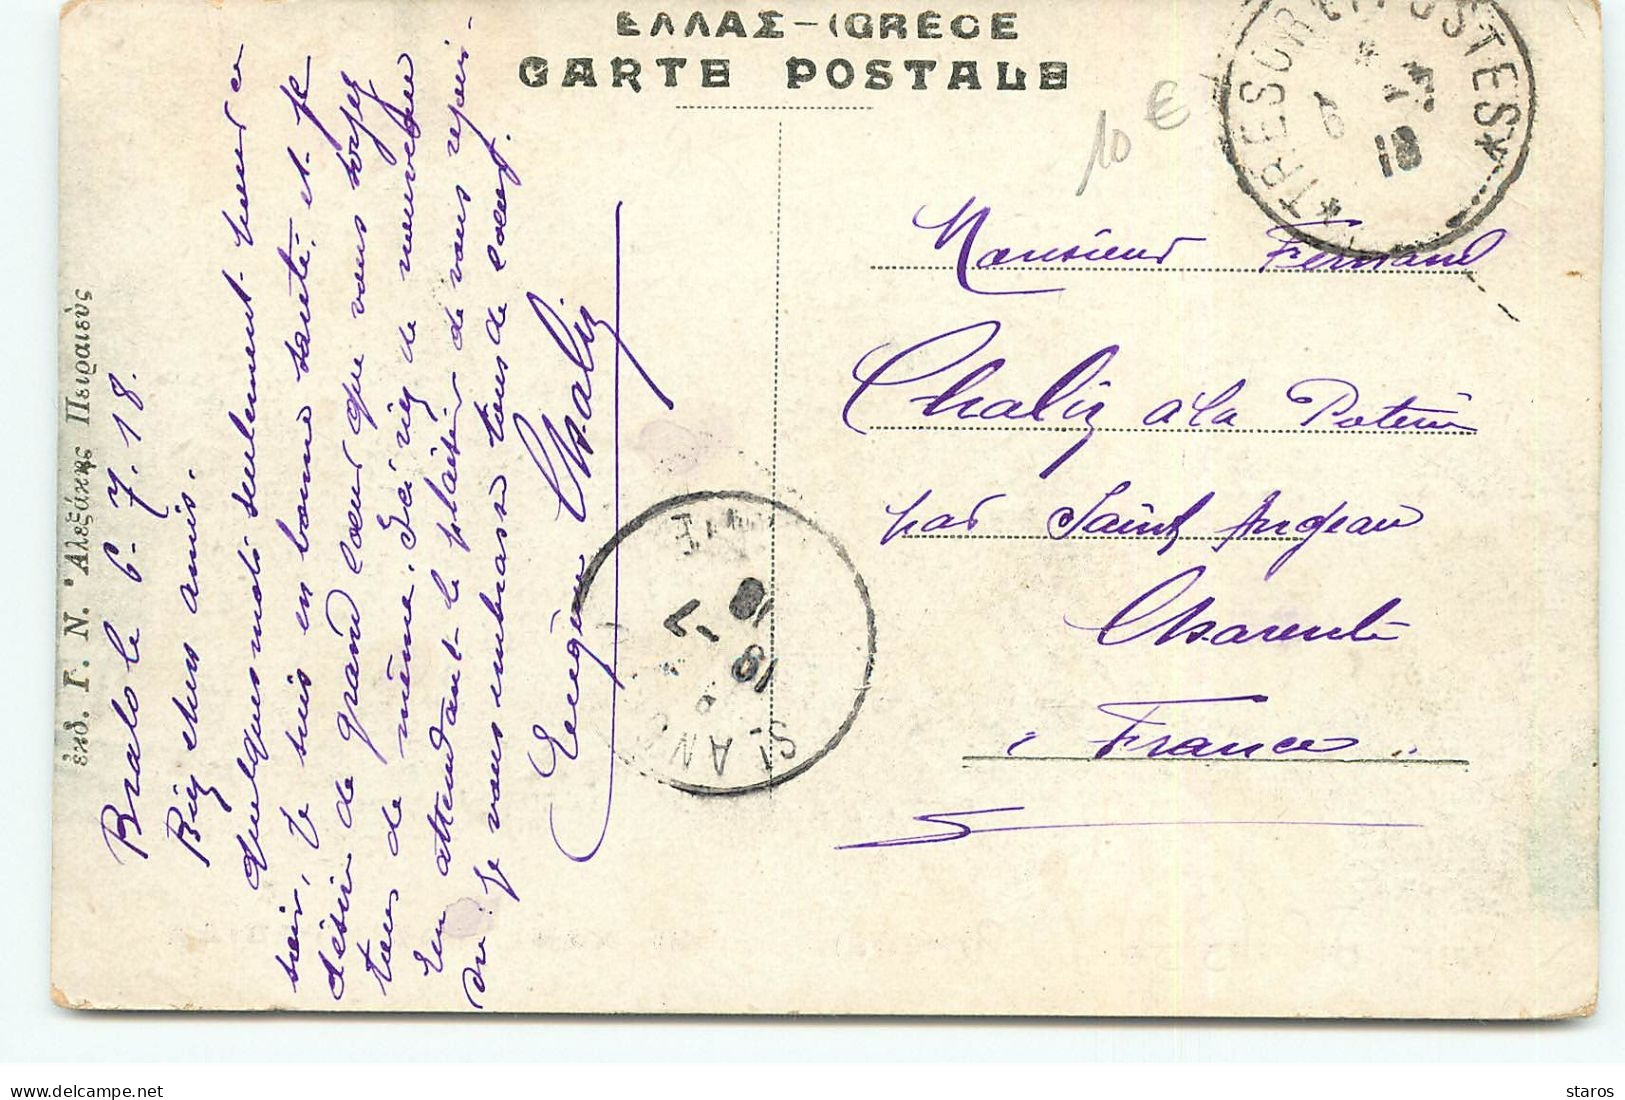 ΕΛΛΑΣ - GRÈCE
CARTE POSTALE
*TRESOR ET POSTES*
6
7
18
10 €
Monsieur Fernand
Chaliz à la Poterie
par Saint Angeau
Charente
France
ἐκδ. Γ. Ν. Ἀλεξάκης Πειραιεὺς
Bralo le 6. 7. 18.
Biez chers amis.
quelques mots seulement pour ce
soir, Je suis en bonne santé et je
désire de grand cœur que vous soyez
tous de même. Ici riez de nouveau
En attendant le plaisir de vous
Je vous embrasse tous de cœur.
Eugène Chaliz
ST ANG
18
7
18
staros